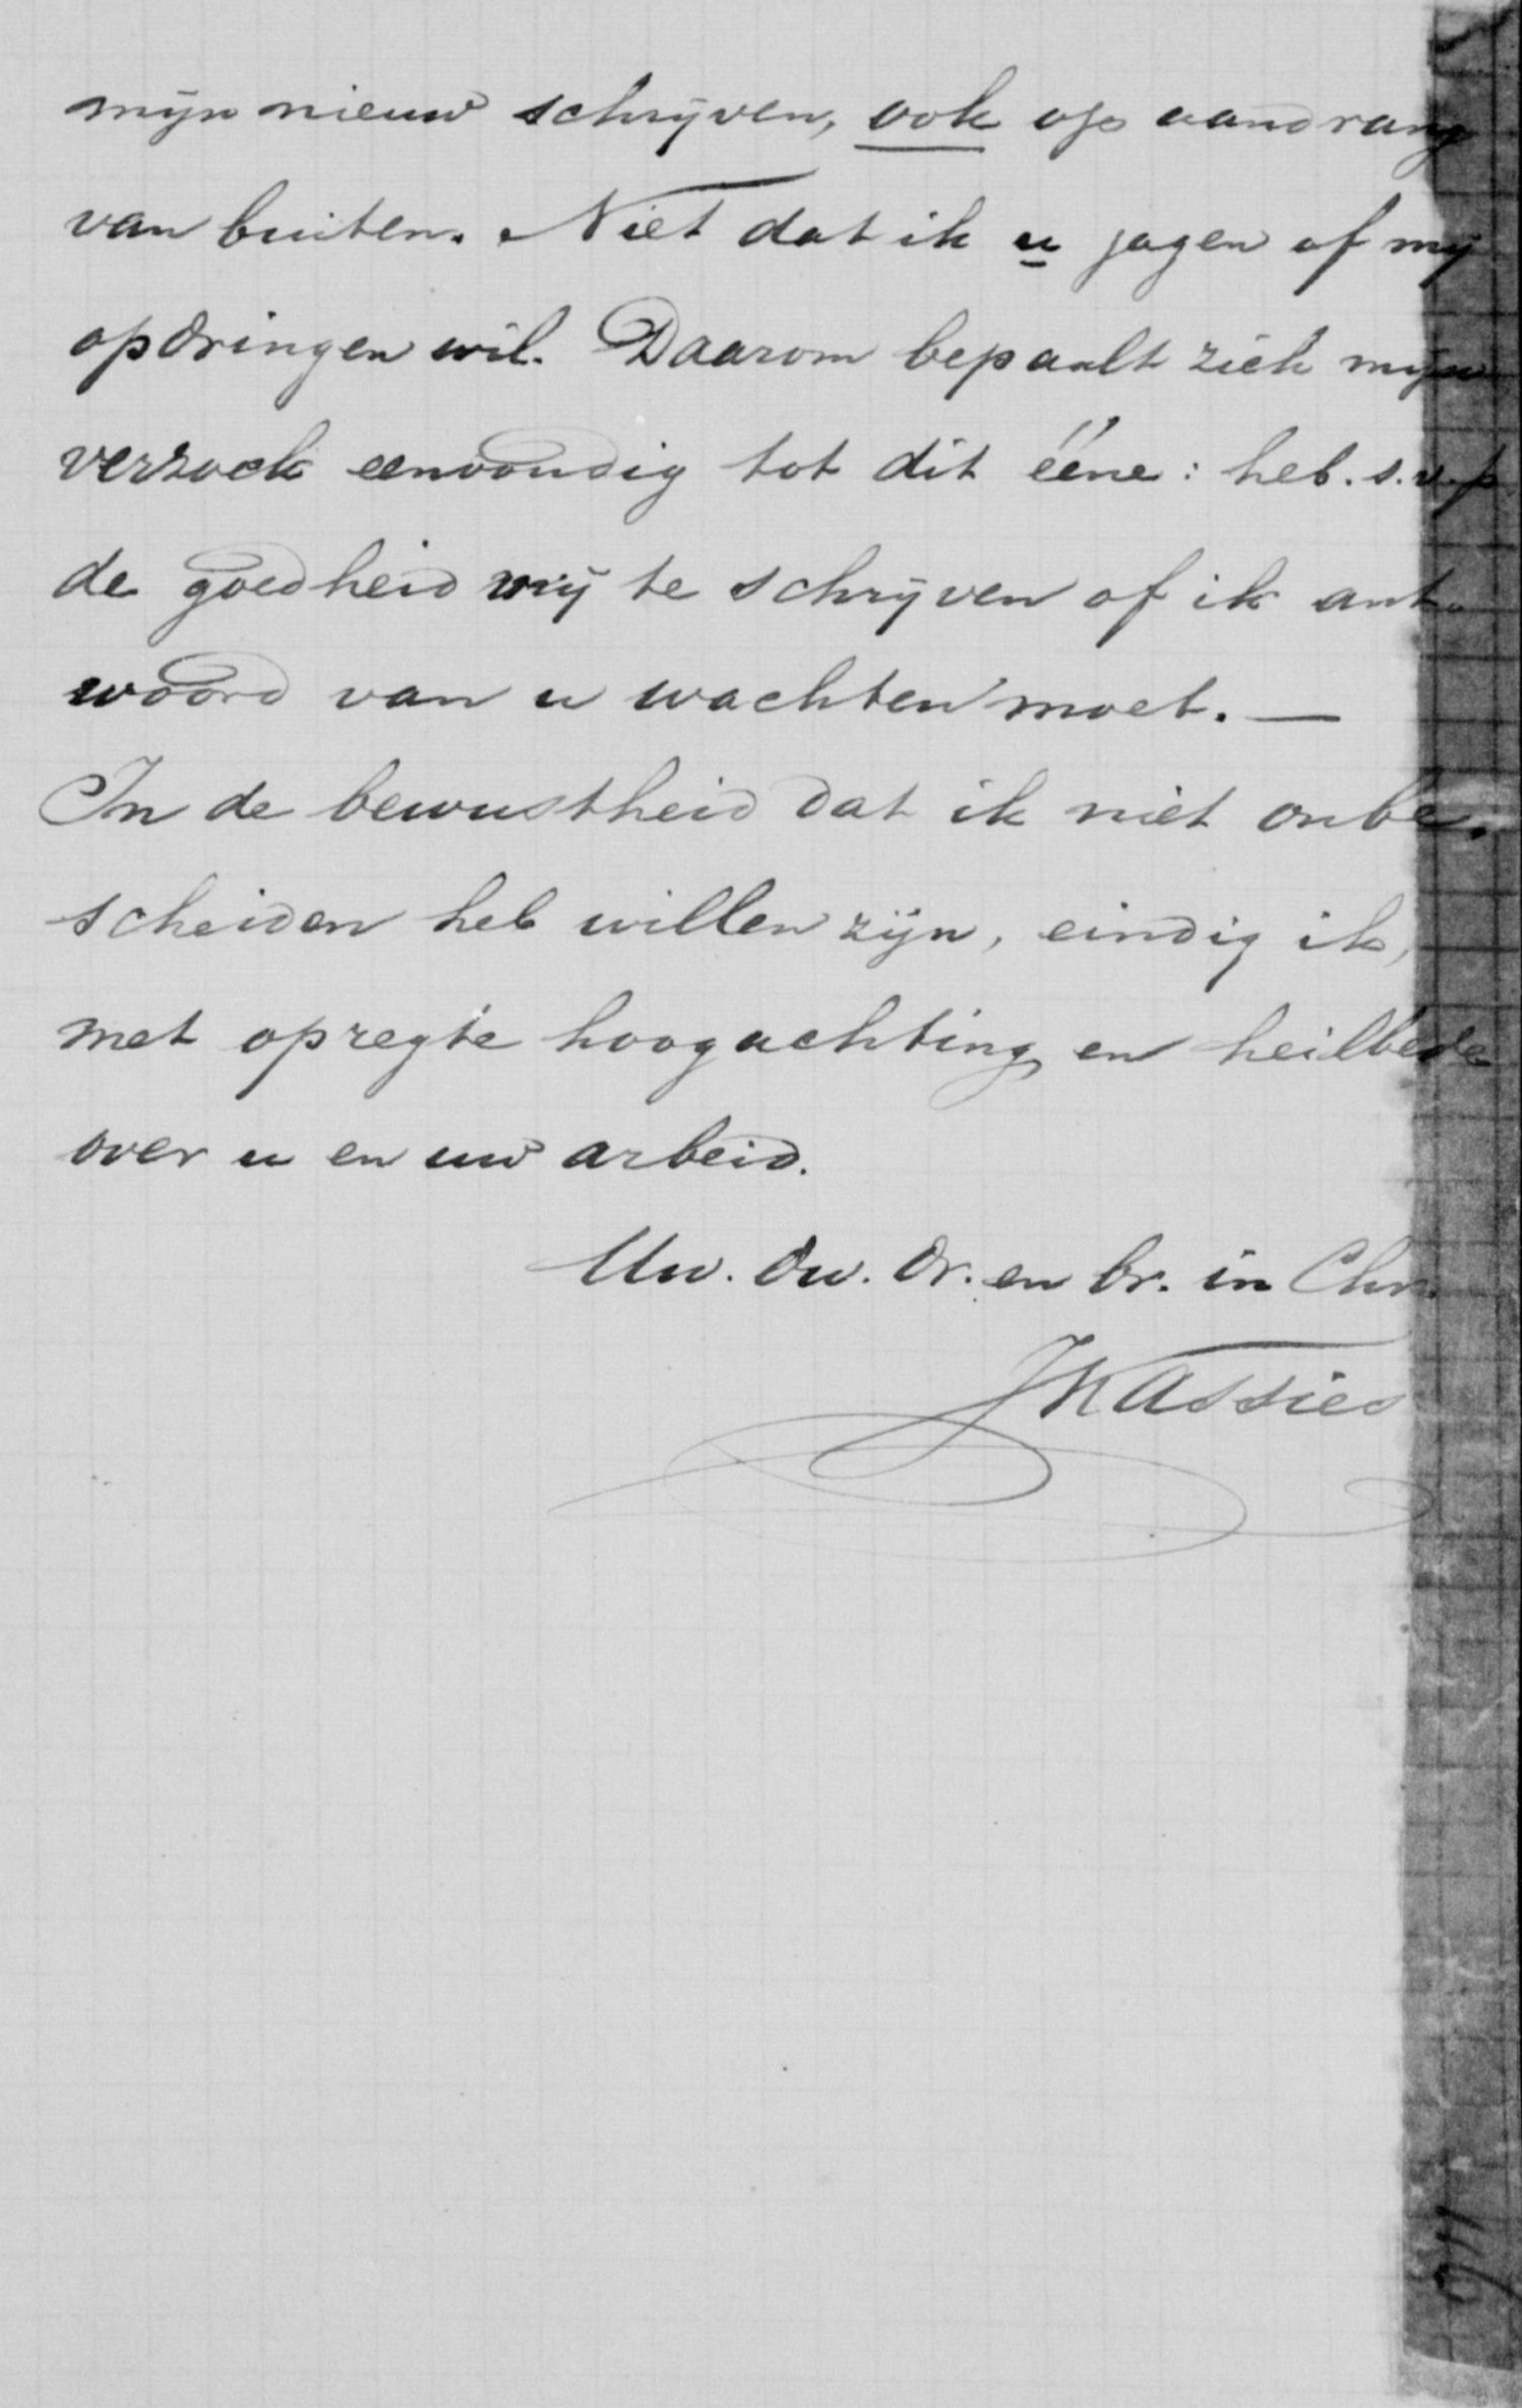 mijn nieuw schrijven, ook op aandrang
van buiten. Niet dat ik u jagen of mij
opdringen wil. Daarom bepaalt zich mijn
verzoek eenvoudig tot dit ééne: heb. s.v.p
de goedheid mij te schrijven of ik ant-
woord van u wachten moet. —
In de bewustheid dat ik niet onbe-
scheiden heb willen zijn, eindig ik,
met opregte hoogachting en heilbede
over u en uw arbeid.
Uw. dw. dr. en br. in Chr.
JKassies